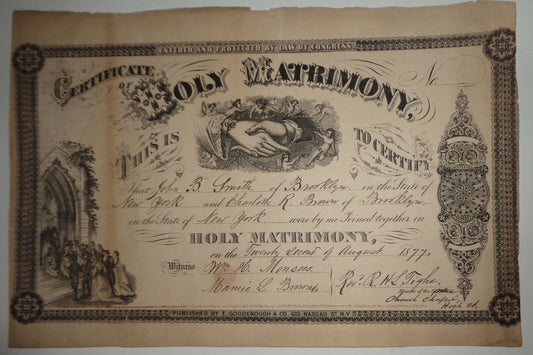 ENTERED AND PROTECTED BY LAW OF CONGRESS
CERTIFICATE
HOLY MATRIMONY,
No
THIS IS
TO CERTIFY
That John B. Smith of Brooklyn in the State of
New York and Charlotte R. Brown of Brooklyn,
in the State of New York were by me Joined together in
HOLY MATRIMONY,
on the Twenty Second of August 1877.
Witness
Wm H. Monsees
Mamie L. Brown
Rev. R. H. L. Tighe
Church Chapel
High St.
PUBLISHED BY T. GOODENOUGH & CO. 122 NASSAU ST. N.Y.